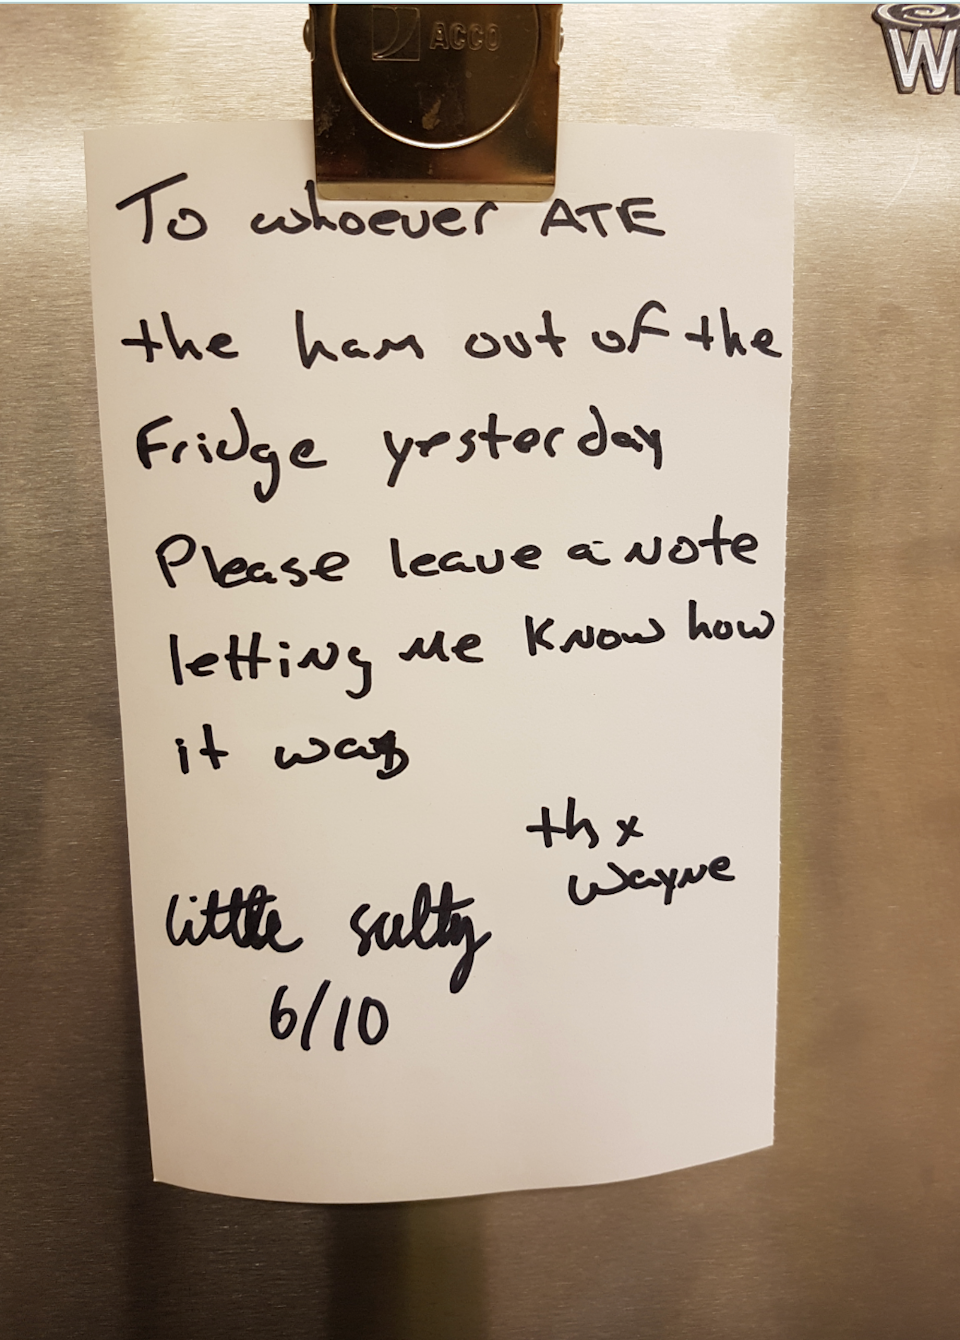 ACCO
W
To whoever ATE
the ham out of the
Fridge yesterday
Please leave a note
letting me know how
it was
thx
Wayne
little salty
6/10